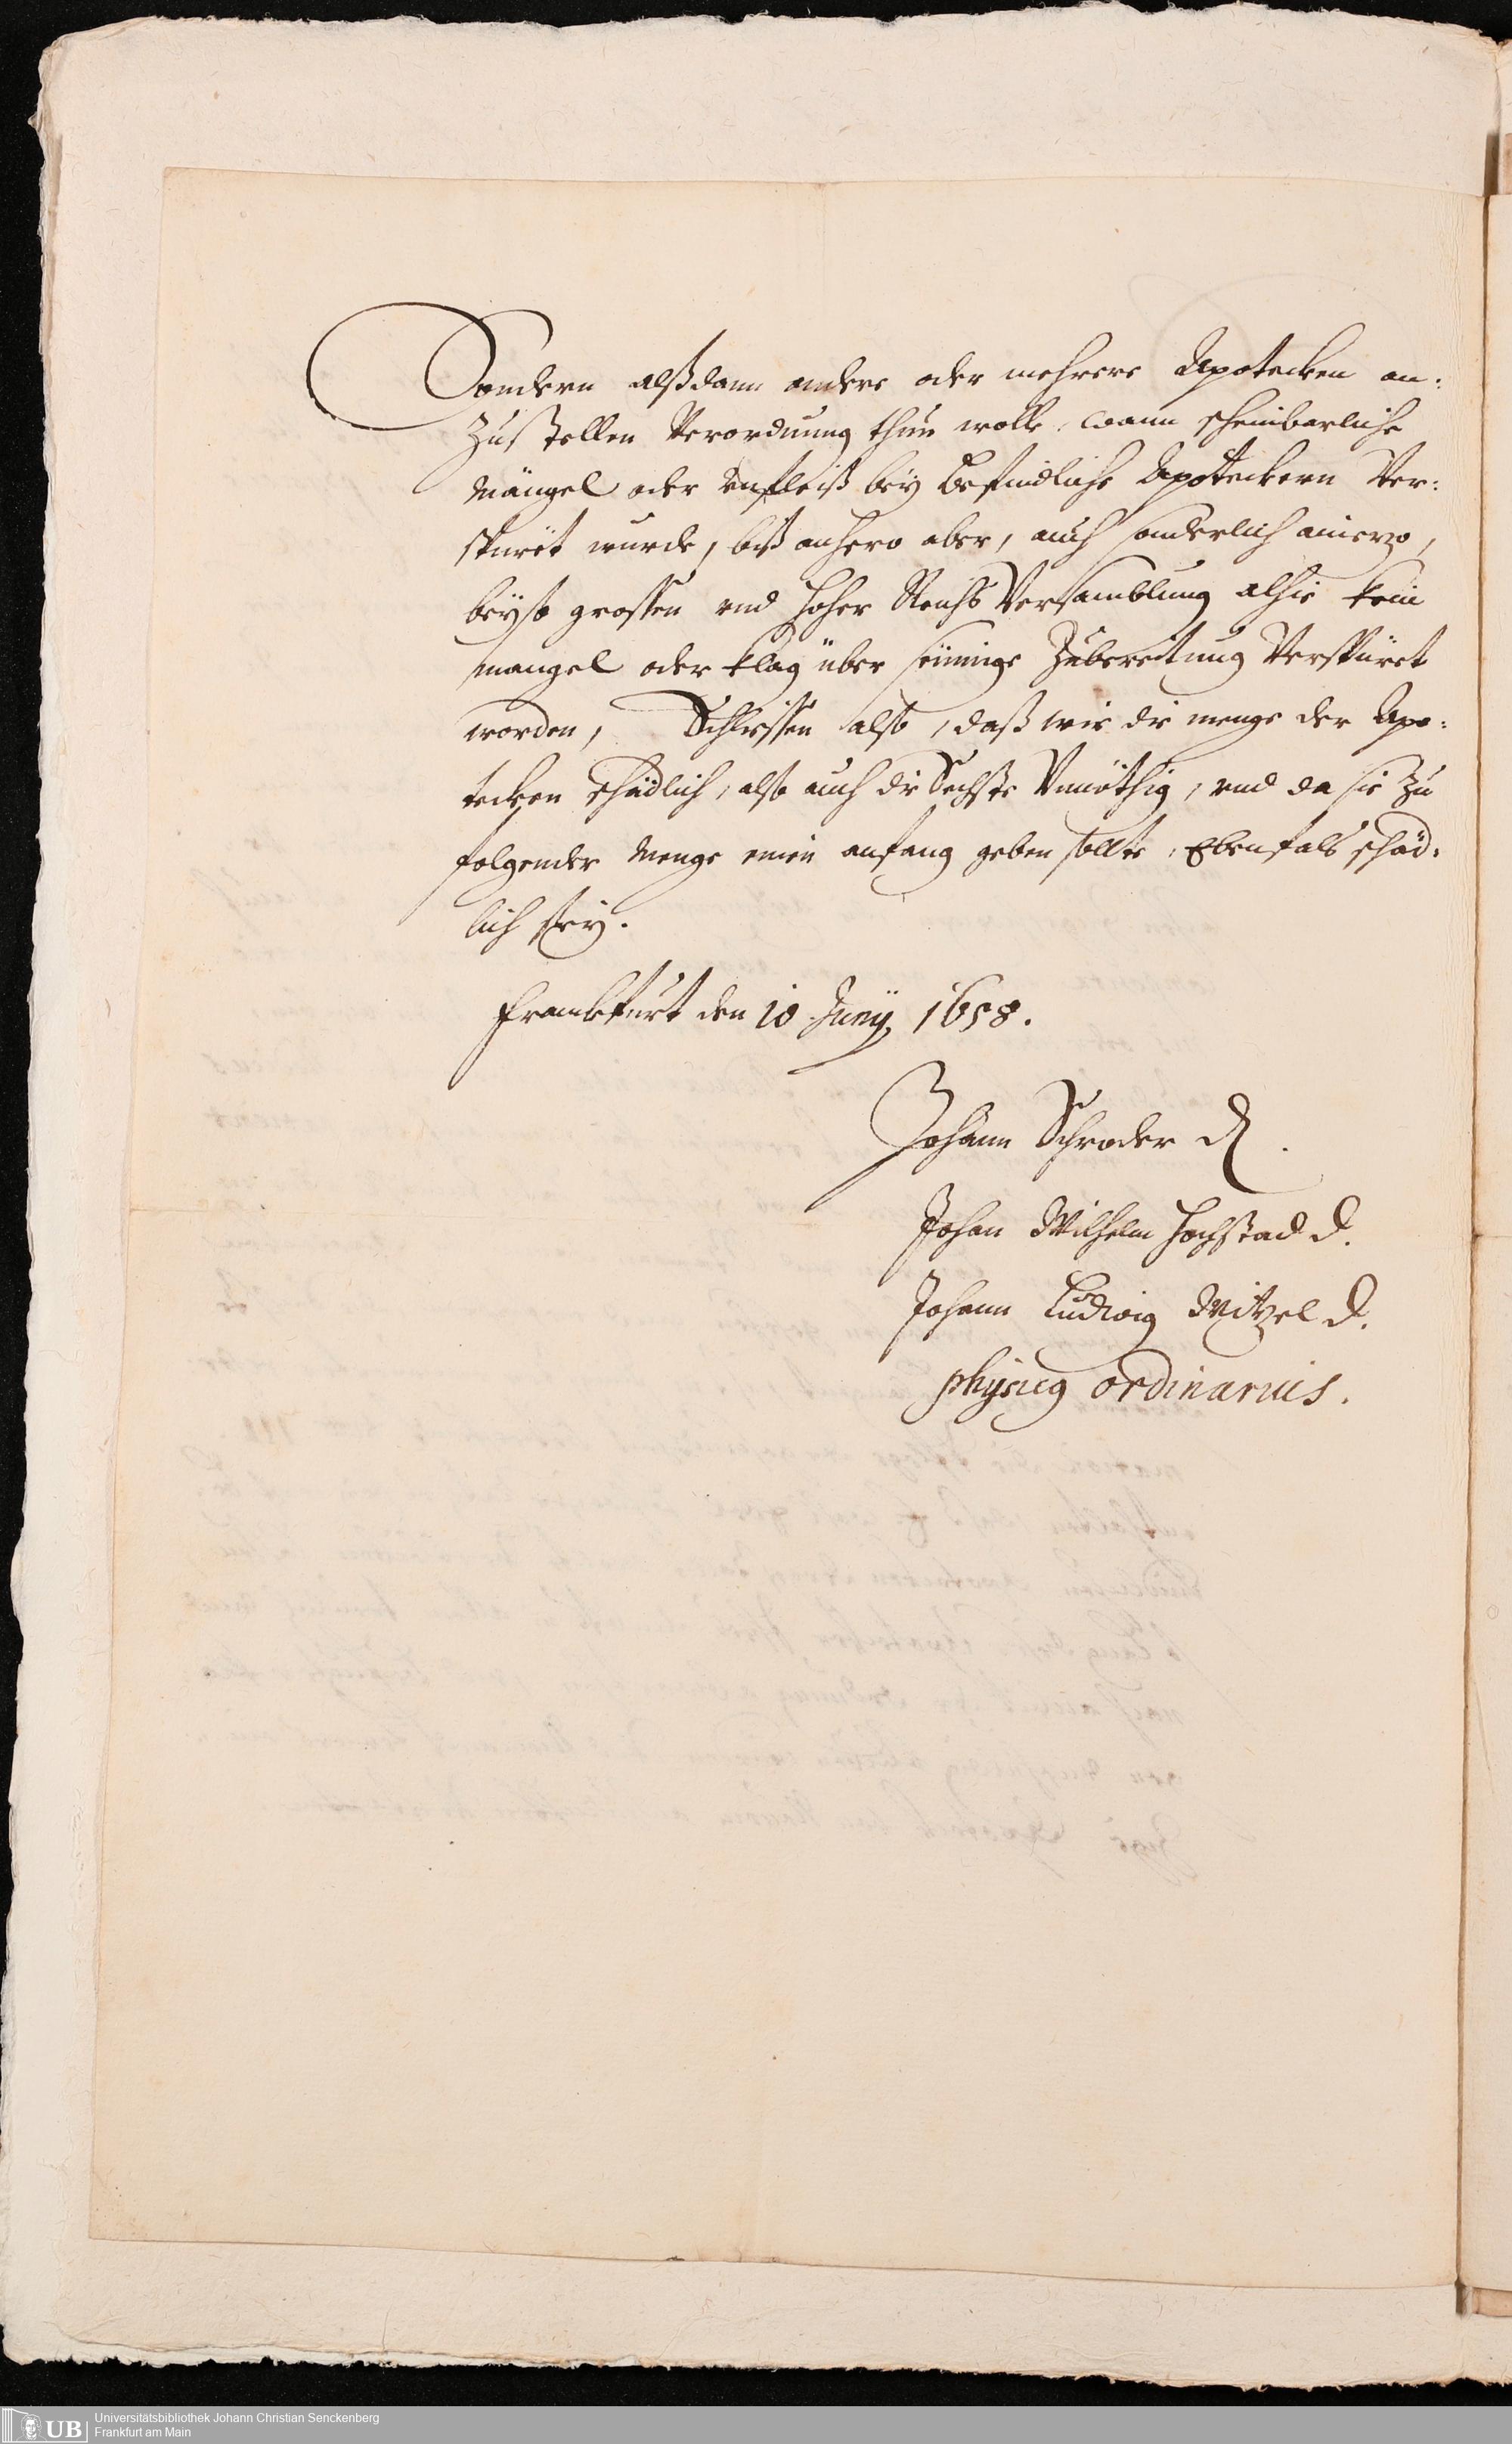 Sondern alßdann andere oder mehrere Apotecken an:
zustellen Verordnung thun wolle, wann scheinbarliche
Mängel oder unfleiß bey befindliche Apoteckern Ver:
spüret wurde, biß anhero aber, auch sonderlich aniezo,
bey so grossen und hoher Reichs Versamblung alhie kein
mangel oder klag über seümige Zubereitung Verspüret
worden, Schliessen also, daß wie die menge der Apo:
tecken schädlich, also auch die Sechste Unnöthig, und da sie zu
folgender Menge einen anfang geben sollte, Ebenfals schäd:
lich sey.
Franckfurt den 10 Junÿ 1658.
Johann Schroder D.
Johan Wilhelm Hochstad D.
Johann Ludwig Witzel D.
physicus ordinarius.
UB
Universitätsbibliothek Johann Christian Senckenberg
Frankfurt am Main